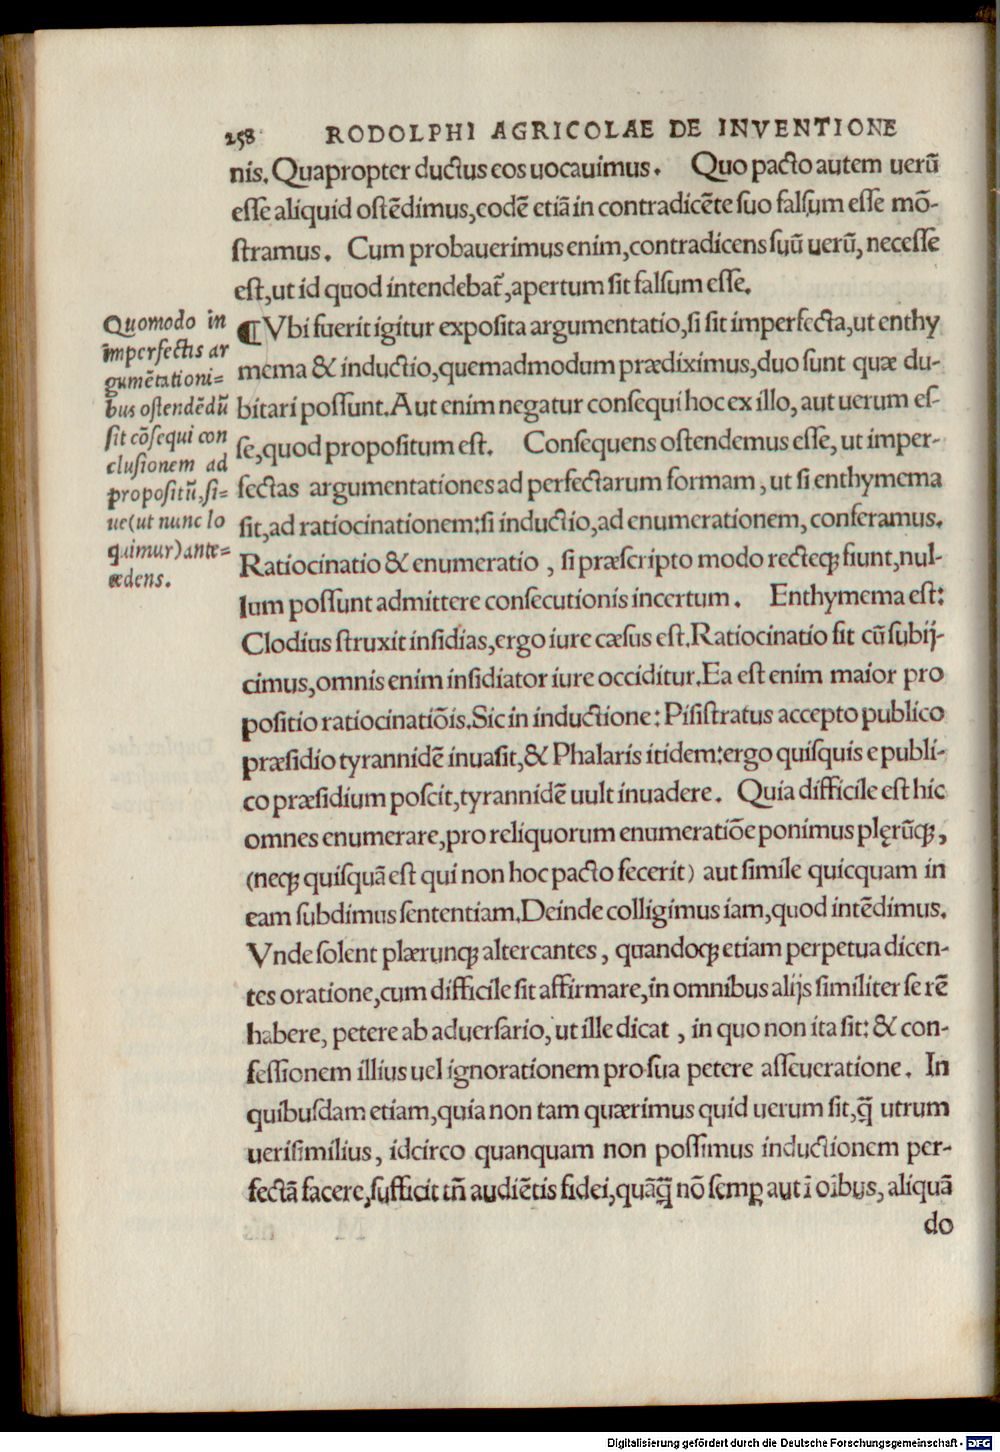 258 RODOLPHI AGRICOLAE DE INVENTIONE
nis. Quapropter ductus eos uocauimus. Quo pacto autem uerũ
eſſe aliquid oſtẽdimus, eodẽ etiã in contradicẽte ſuo falſum eſſe mõ-
ſtramus. Cum probauerimus enim, contradicens ſuũ uerũ, neceſſe
eſt, ut id quod intendebat̃, apertum ſit falſum eſſe.
¶ Vbi fuerit igitur expoſita argumentatio, ſi ſit imperfecta, ut enthy
mema & inductio, quemadmodum prædiximus, duo ſunt quæ du-
bitari poſſunt. Aut enim negatur conſequi hoc ex illo, aut uerum eſ-
ſe, quod propoſitum eſt. Conſequens oſtendemus eſſe, ut imper-
fectas argumentationes ad perfectarum formam, ut ſi enthymema
ſit, ad ratiocinationem: ſi inductio, ad enumerationem, conferamus.
Ratiocinatio & enumeratio, ſi præſcripto modo recteq; fiunt, nul-
lum poſſunt admittere conſecutionis incertum. Enthymema eſt:
Clodius ſtruxit inſidias, ergo iure cæſus eſt. Ratiocinatio fit cũ ſubij-
cimus, omnis enim inſidiator iure occiditur. Ea eſt enim maior pro
poſitio ratiocinatiõis. Sic in inductione: Piſiſtratus accepto publico
præſidio tyrannidẽ inuaſit, & Phalaris itidem: ergo quiſquis e publi-
co præſidium poſcit, tyrannidẽ uult inuadere. Quia difficile eſt hic
omnes enumerare, pro reliquorum enumeratiõe ponimus plęrũq;,
(neq; quiſquã eſt qui non hoc pacto fecerit) aut ſimile quicquam in
eam ſubdimus ſententiam. Deinde colligimus iam, quod intẽdimus.
Vnde ſolent plærunq; altercantes, quandoq; etiam perpetua dicen-
tes oratione, cum difficile ſit affirmare, in omnibus alijs ſimiliter ſe rẽ
habere, petere ab aduerſario, ut ille dicat, in quo non ita ſit: & con-
feſſionem illius uel ignorationem pro ſua petere aſſeueratione. In
quibuſdam etiam, quia non tam quærimus quid uerum ſit, q̃ utrum
ueriſimilius, idcirco quanquam non poſſimus inductionem per-
fectã facere, ſufficit tñ audiẽtis fidei, quãq̃ nõ ſemꝑ aut ĩ oĩbus, aliquã
do
Quomodo in
imperfectis ar
gumẽtationi=
bus oſtendẽdũ
ſit cõſequi con
cluſionem ad
propoſitũ, ſi=
ue (ut nunc lo
quimur) ante=
cedens.
Digitalisierung gefördert durch die Deutsche Forschungsgemeinschaft - DFG